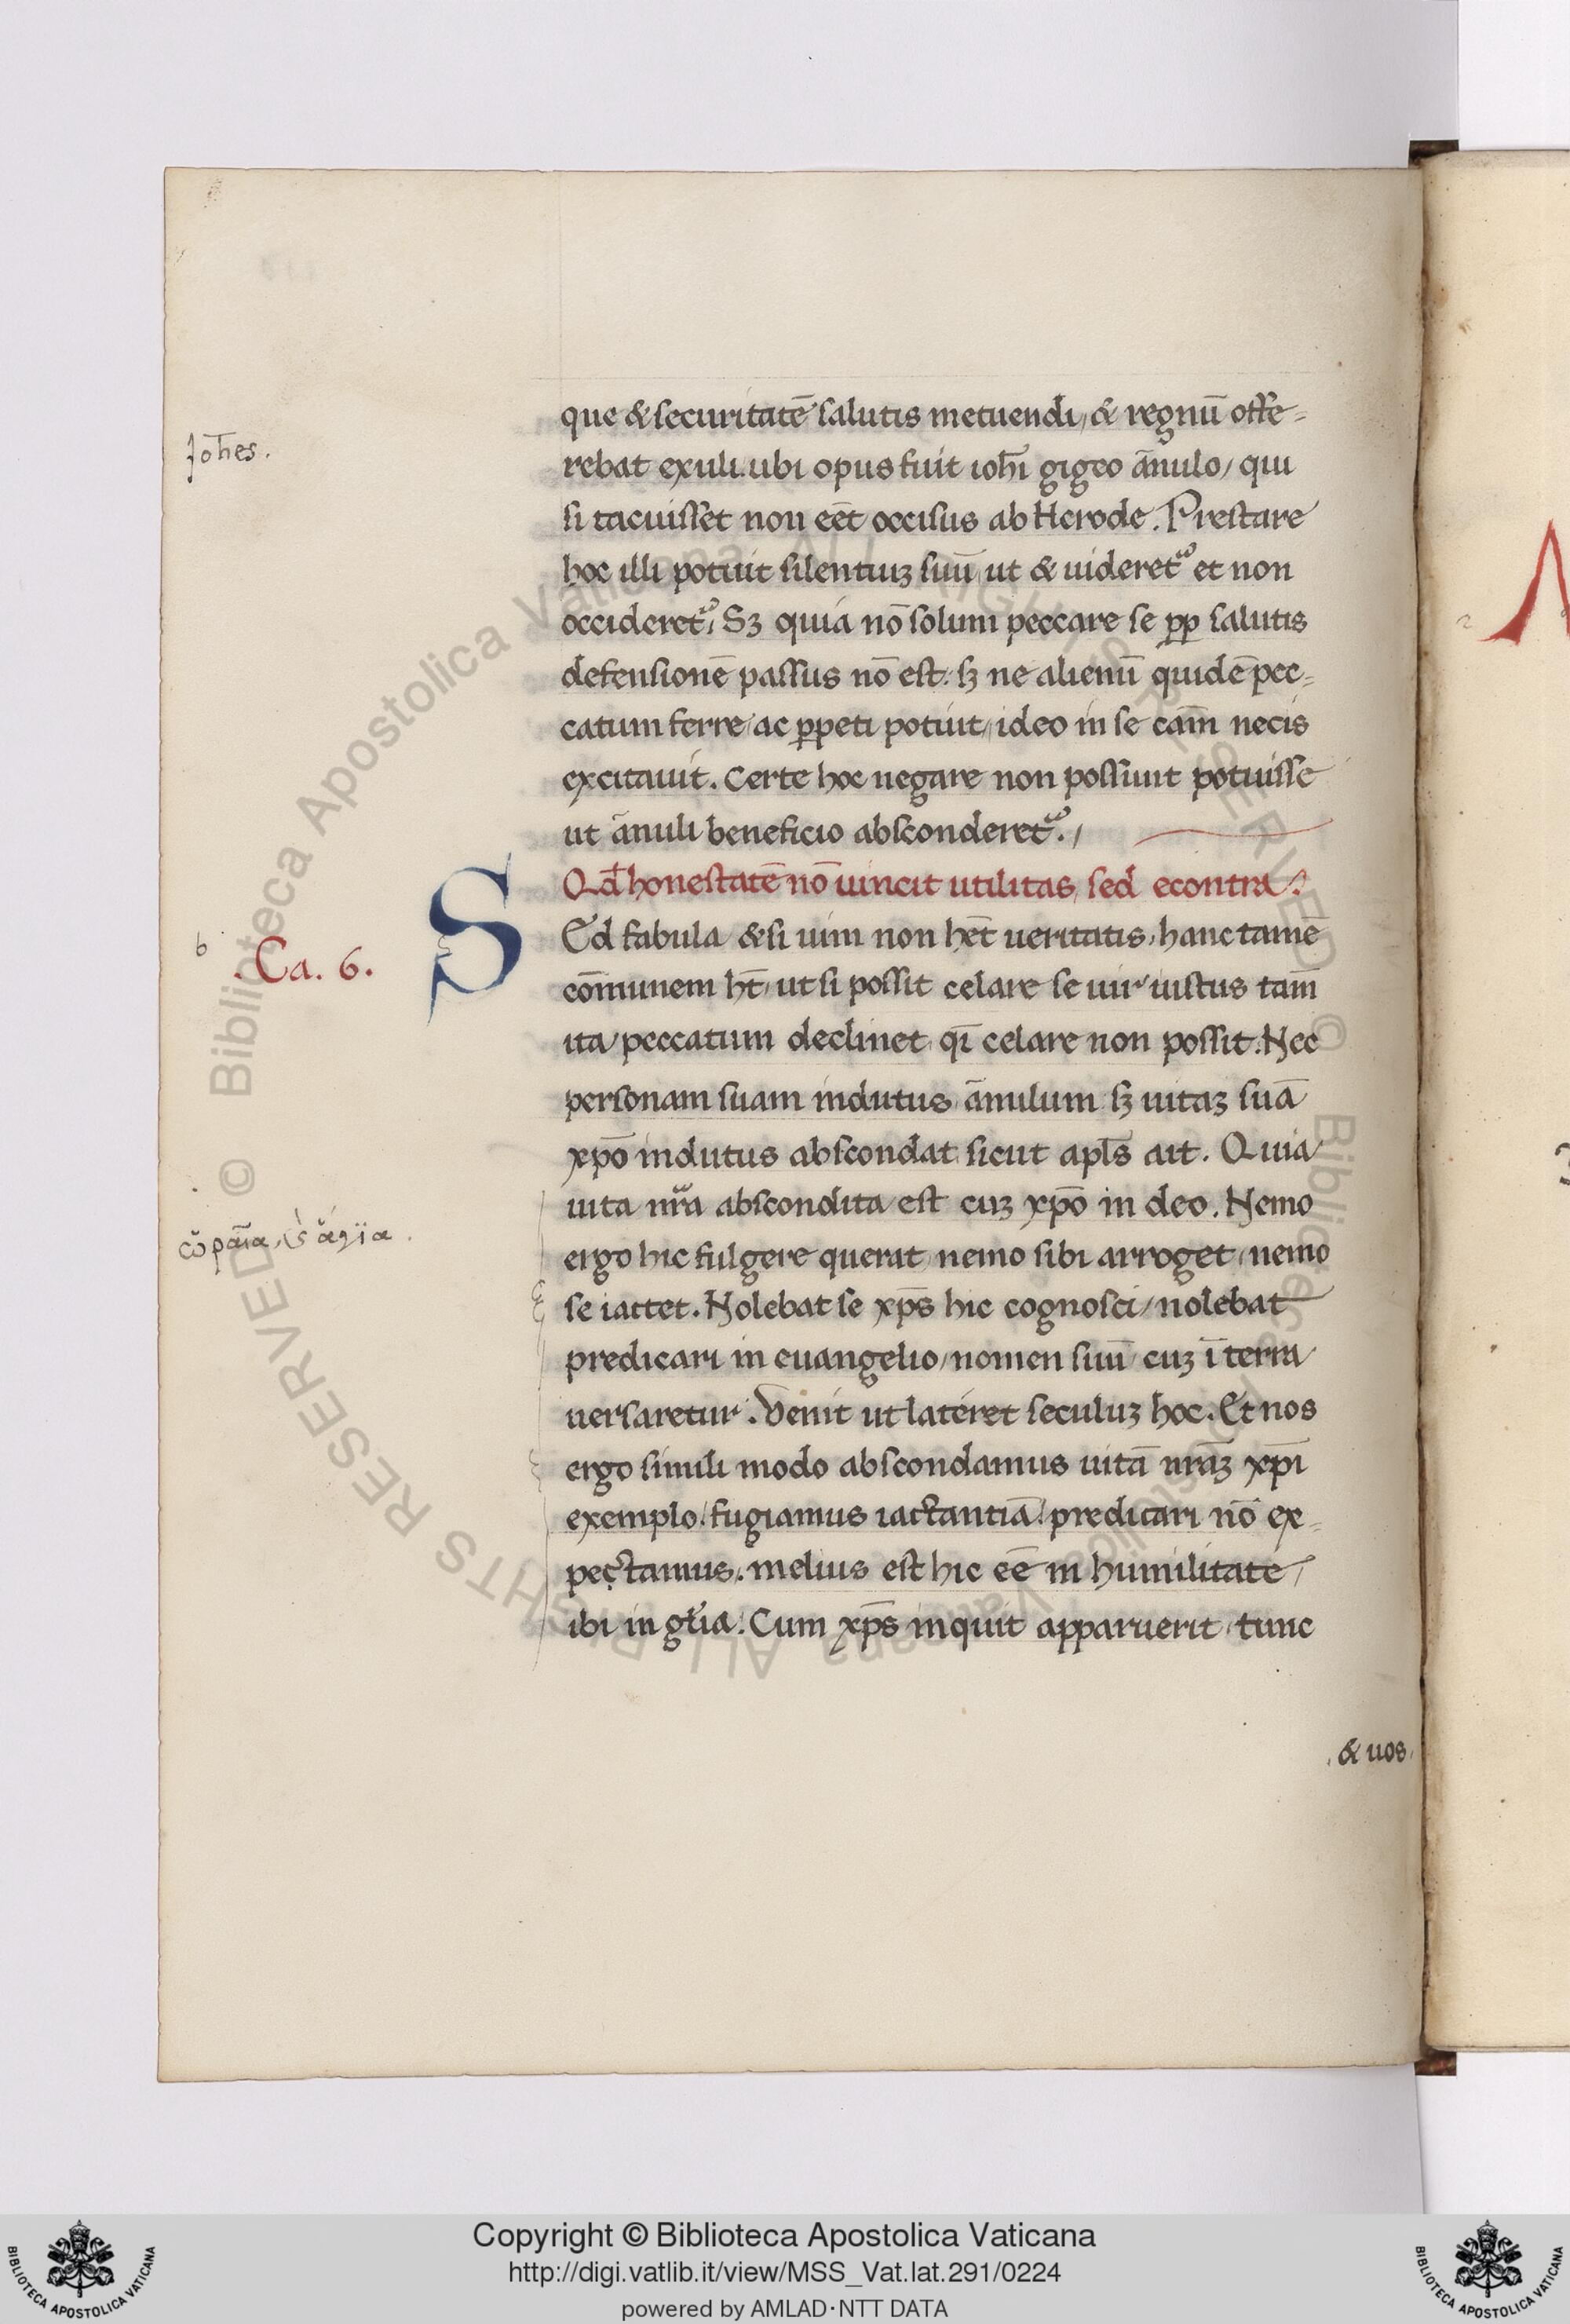 que & securitatē salutis metuendi, & regnū offe-
Johēs.
rebat exuli. ubi opus fuit iohī gigeo ānulo, qui
si tacuisset non eēt occisus ab Herode. Prestare
hoc illi potuit silentiuʒ suū ut & uideretᷣ et non
occideretᷣ, Sʒ quia nō solum peccare se ꝓp salutis
defensionē passus nō est. sʒ ne alienū quidē pec-
catum ferre ac ꝑpeti potuit, ideo in se cām necis
excitauit. Certe hoc negare non possunt potuisse
ut ānuli beneficio absconderetᷣ.
Qđ honestatē nō uincit utilitas, sed econtra.
SEd fabula & si uim non hēt ueritatis, hanc tamē
b
.Ca. 6.
cōmunem ht̄, ut si possit celare se uir iustus tam̄
ita peccatum declinet qī celare non possit. Nec
personam suam indutus ānulum sʒ uitaʒ suā
xpō indutus abscondat sicut apl̄s ait. Quia
uita nr̄a abscondita est cuʒ xpō in deo. Nemo
ergo hic fulgere querat, nemo sibi arroget, nemo
se iactet. Nolebat se xps̄ hic cognosci, nolebat
predicari in euangelio, nomen suū cuʒ ī terra
uersaretur. Venit ut lateret seculuʒ hoc. Et nos
ergo simili modo abscondamus uitā nrāʒ xpī
exemplo. fugiamus iactantiā. predicari nō ex-
pectamus. melius est hic eē in humilitate,
ibi in glīa. Cum xps̄ inquit apparuerit, tunc
. & uos.
© Biblioteca Apostolica Vaticana ALL RIGHTS RESERVED
© Biblioteca Apostolica Vaticana ALL RIGHTS RESERVED
Copyright © Biblioteca Apostolica Vaticana
http://digi.vatlib.it/view/MSS_Vat.lat.291/0224
powered by AMLAD·NTT DATA
BIBLIOTECA APOSTOLICA VATICANA
BIBLIOTECA APOSTOLICA VATICANA